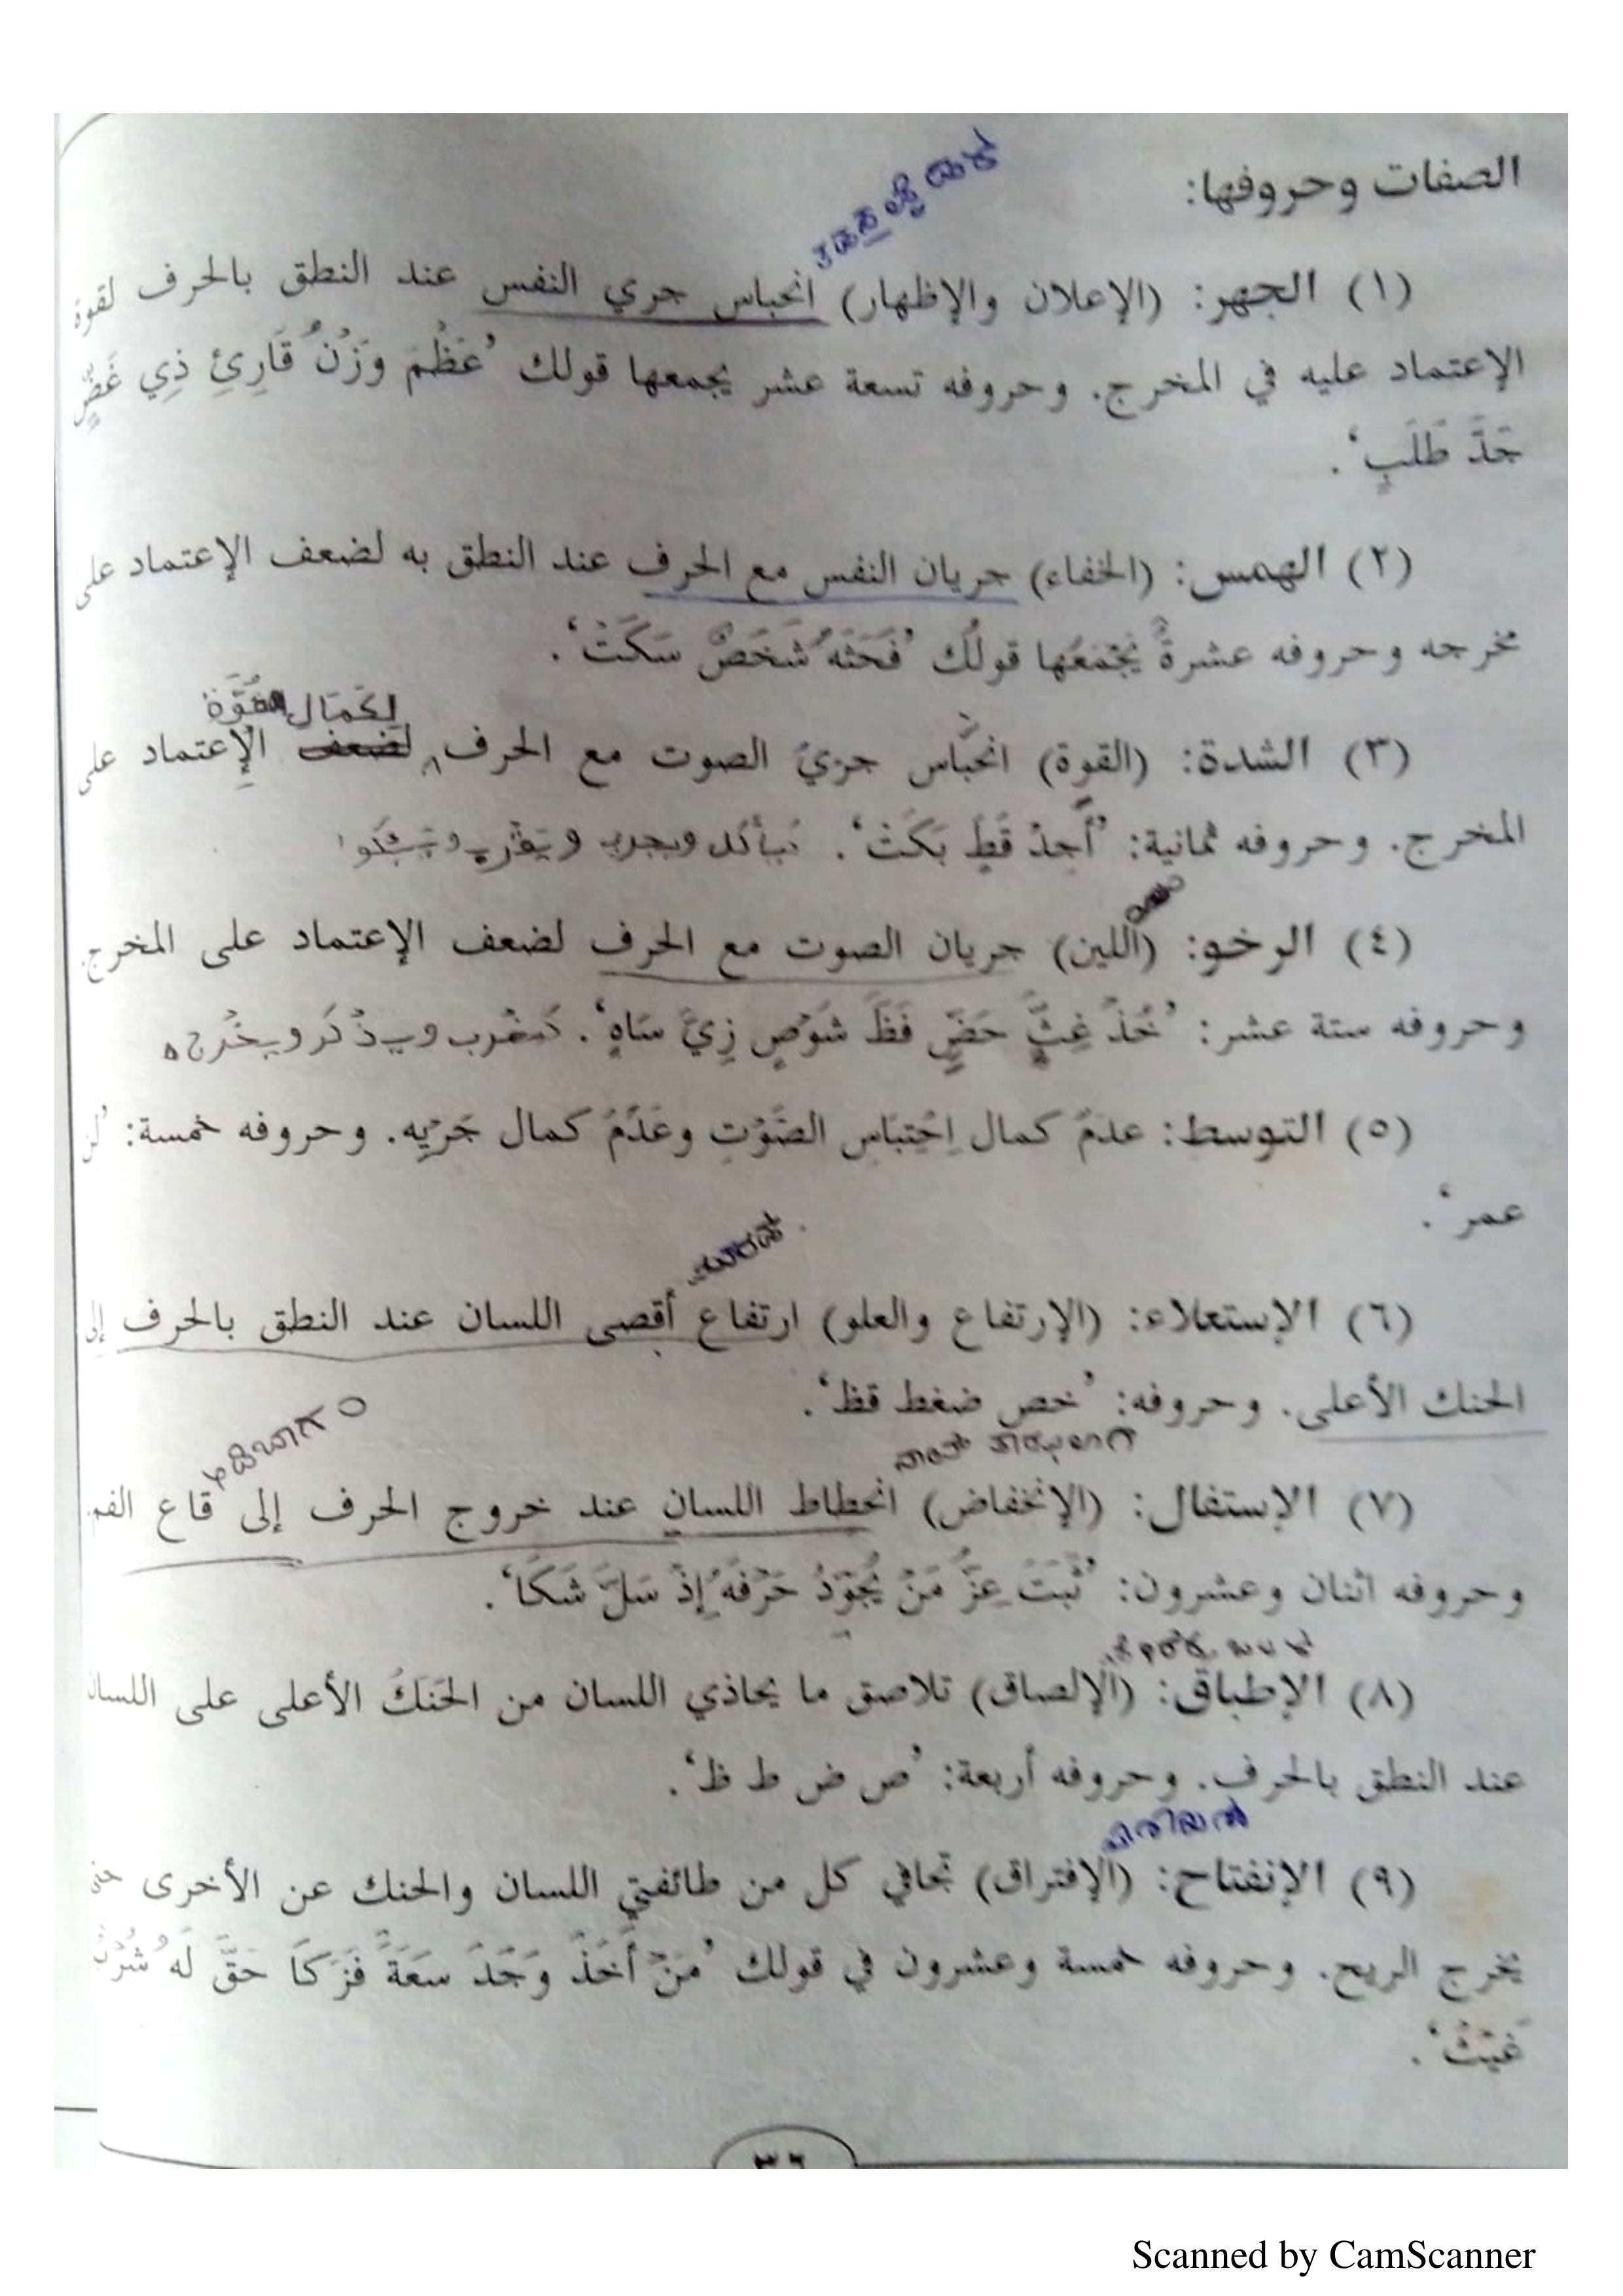 الصفات وحروفها:
(١) الجهر: (الإعلان والإظهار) انحباس جري النفس عند النطق بالحرف لقوة
الإعتماد عليه في المخرج. وحروفه تسعة عشر يجمعها قولك ’عَظُمَ وَزْنُ قَارِئٍ ذِي غَضٍّ
جَدَّ طَلَبٍ‘.
(٢) الهمس: (الخفاء) جريان النفس مع الحرف عند النطق به لضعف الإعتماد على
مخرجه وحروفه عشرةٌ يَجْمَعُها قولُك ’فَحَثَّهُ شَخْصٌ سَكَتْ‘.
لِكَمَالِ قُوَّة
(٣) الشدة: (القوة) انحبَاس جريْ الصوت مع الحرف لضعف الإعتماد على
المخرج. وحروفه ثمانية: ’أَجِدْ قَطٍ بَكَتْ‘.
(٤) الرخو: (اللين) جريان الصوت مع الحرف لضعف الإعتماد على المخرج.
وحروفه ستة عشر: ’خُذْ غِثَّ حَضٍّ فَظَّ شَوْصٍ زِيَّ سَاهٍ‘.
(٥) التوسط: عدمُ كمال اِحْتِبَاسِ الصَّوْتِ وعَدَمُ كمال جَرْيِه. وحروفه خمسة: ’لن
عمر‘.
(٦) الإستعلاء: (الإرتفاع والعلو) ارتفاع أقصى اللسان عند النطق بالحرف إلى
الحنك الأعلى. وحروفه: ’خص ضغط قظ‘.
(٧) الإستفال: (الإنخفاض) انحطاط اللسان عند خروج الحرف إلى قاع الفم.
وحروفه اثنان وعشرون: ’ثَبَتَ عِزُّ مَنْ يُجَوِّدُ حَرْفَهُ إِذْ سَلَّ شَكَا‘.
(٨) الإطباق: (الإلصاق) تلاصق ما يحاذي اللسان من الحَنَكَ الأعلى على اللسان
عند النطق بالحرف. وحروفه أربعة: ’ص ض ط ظ‘.
(٩) الإنفتاح: (الإفتراق) تجافي كل من طائفتي اللسان والحنك عن الأخرى حتى
يخرج الريح. وحروفه خمسة وعشرون في قولك ’مَنْ أَخَذَ وَجَدَ سَعَةً فَزَكَا حَقٌّ لَهُ شُرْبُ
غَيْثٍ‘.
٣٦
Scanned by CamScanner